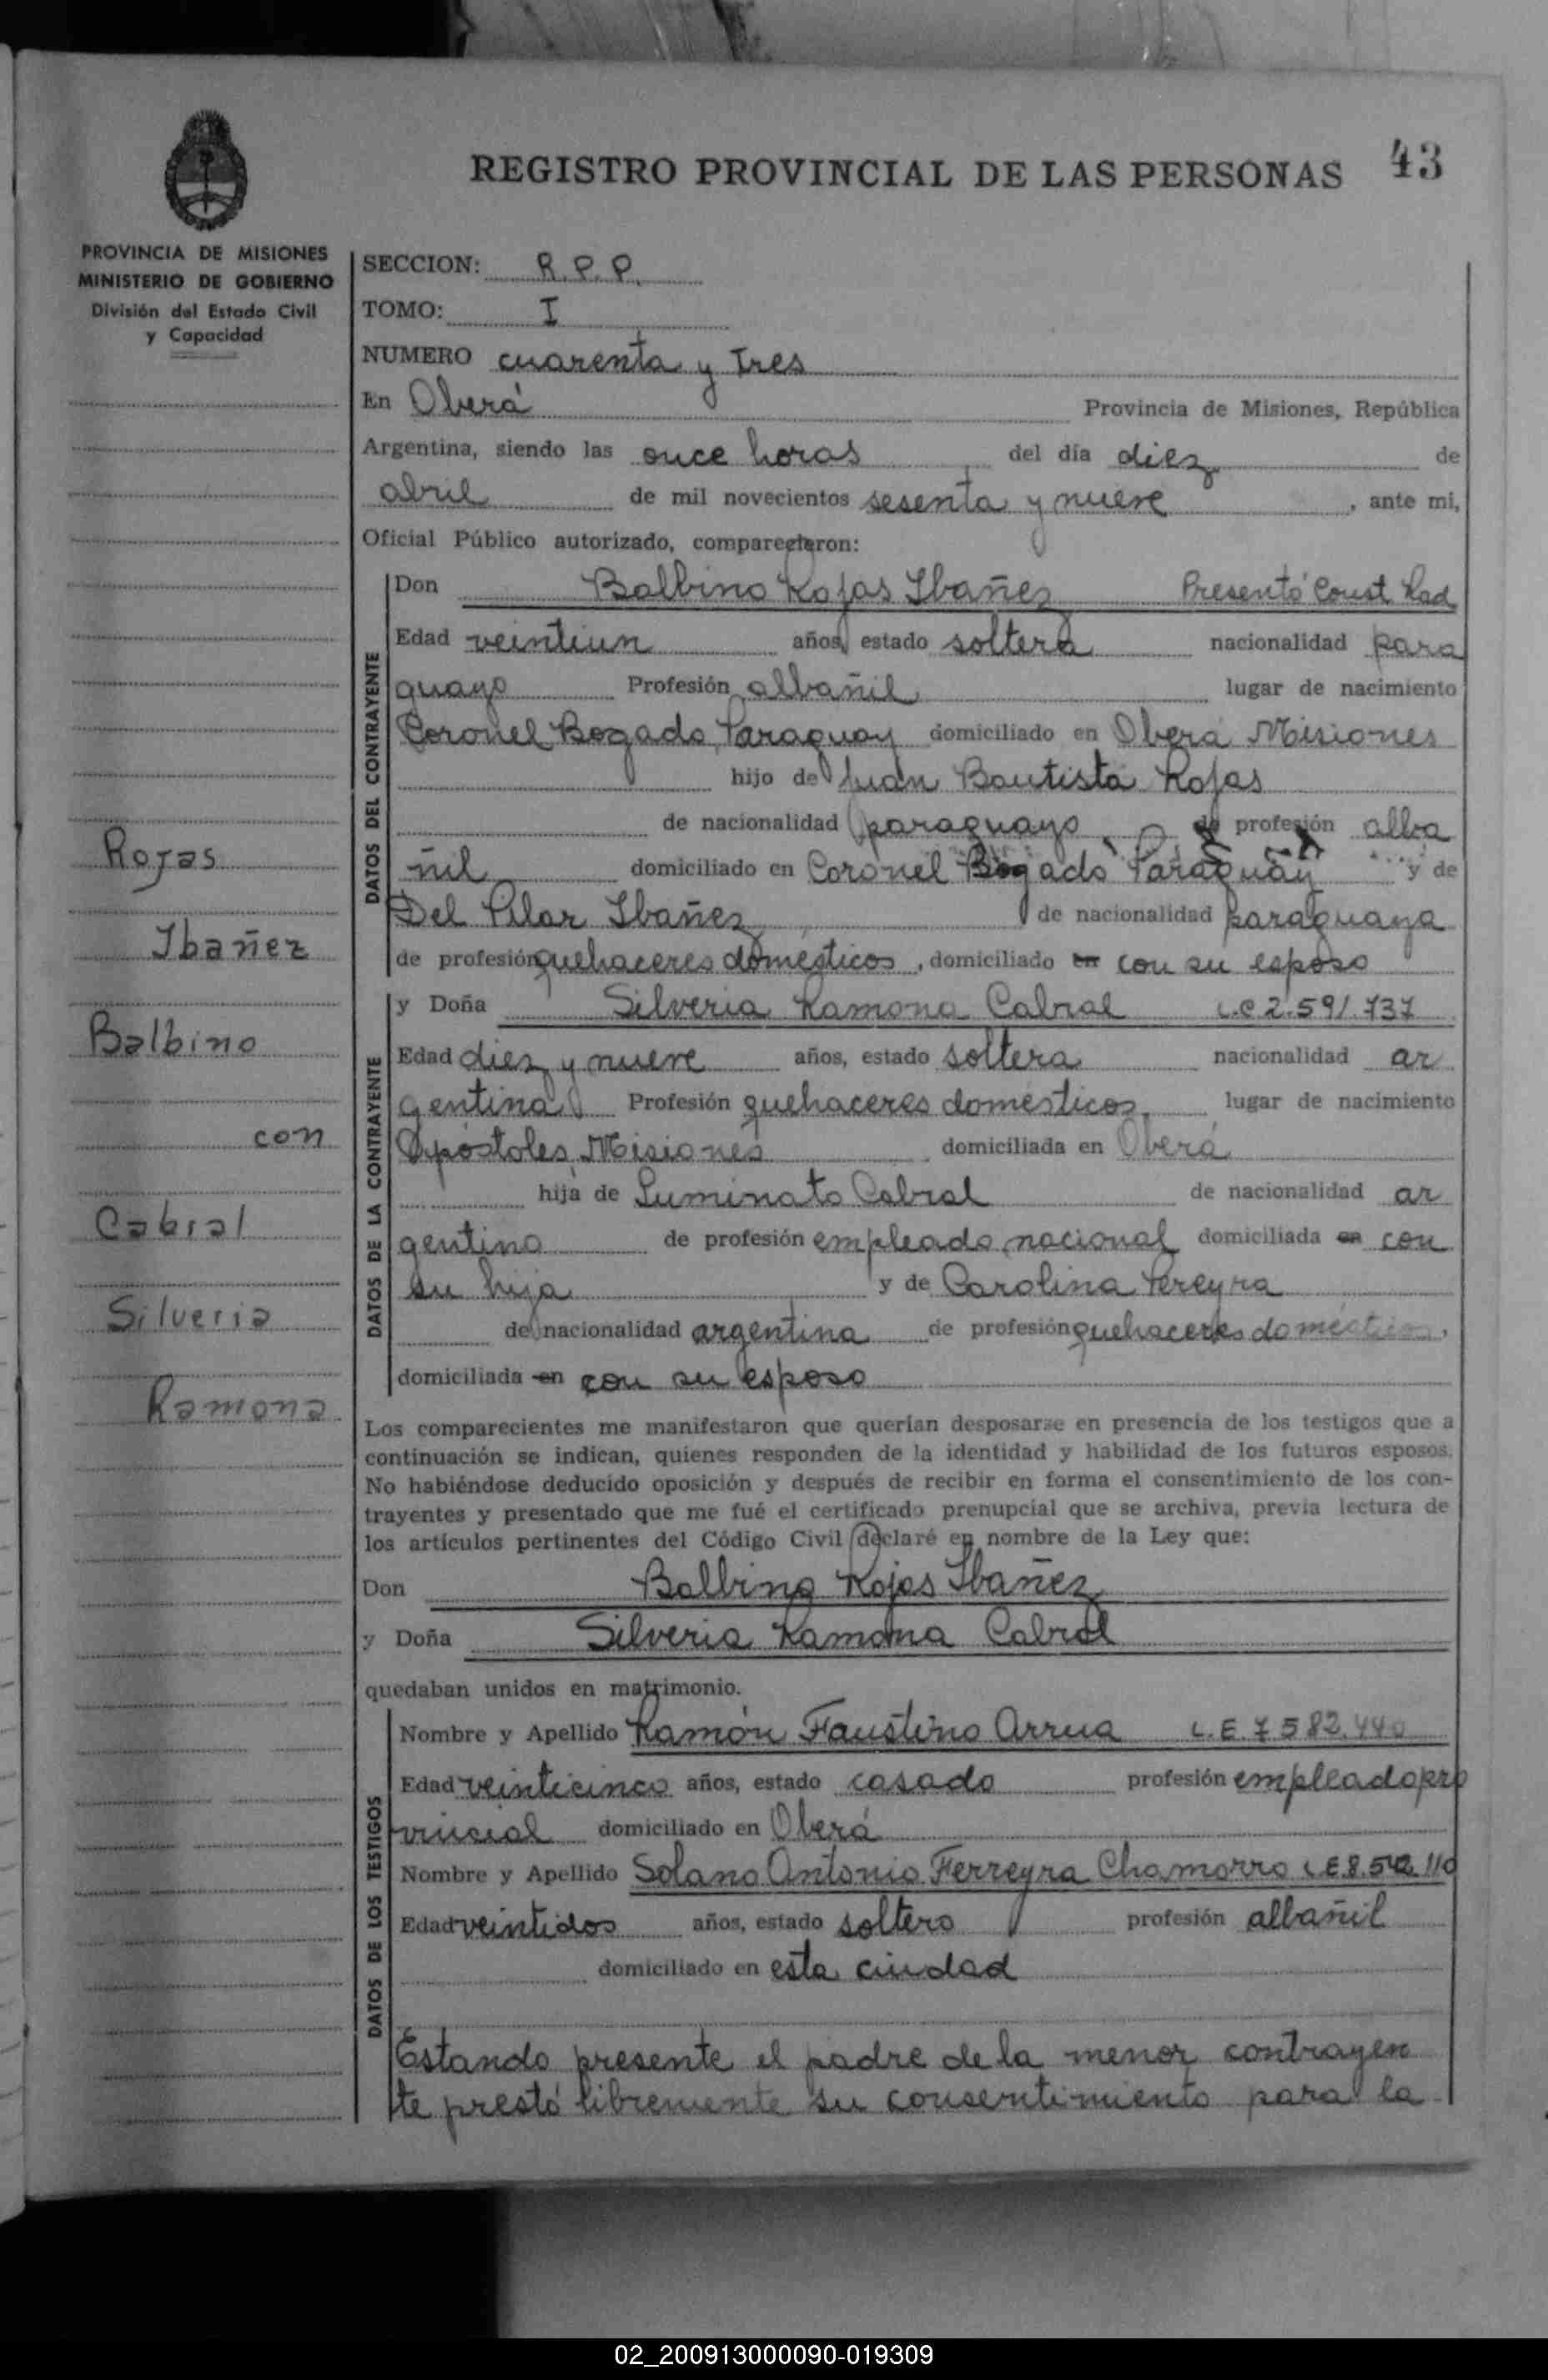 REGISTRO PROVINCIAL DE LAS PERSONAS 43
PROVINCIA DE MISIONES
MINISTERIO DE GOBIERNO
División del Estado Civil
y Capacidad
SECCION: R.P.P.
TOMO: I
NUMERO cuarenta y tres
En Oberá Provincia de Misiones, República
Argentina, siendo las once horas del día diez de
abril de mil novecientos sesenta y nueve, ante mi,
Oficial Público autorizado, comparecieron:
DATOS DEL CONTRAYENTE
Don Balbino Rojas Ibañez Presentó Const Rad
Edad veintiun años, estado soltero nacionalidad para
guayo Profesión albañil lugar de nacimiento
Coronel Bogado, Paraguay domiciliado en Oberá Misiones
hijo de Juan Bautista Rojas
de nacionalidad paraguayo, de profesión alba
ñil domiciliado en Coronel Bogado Paraguay y de
Del Pilar Ibañez, de nacionalidad paraguaya
de profesión quehaceres domésticos, domiciliado en con su esposo
DATOS DE LA CONTRAYENTE
y Doña Silveria Ramona Cabral L.C 2.591.737
Edad diez y nueve años, estado soltera nacionalidad ar
gentina Profesión quehaceres domésticos, lugar de nacimiento
Apóstoles, Misiones domiciliada en Oberá
hija de Luminato Cabral de nacionalidad ar
gentino de profesión empleado nacional domiciliada en con
su hija y de Carolina Pereyra
de nacionalidad argentina de profesión quehaceres domésticos,
domiciliada en con su esposo
Rojas
Ibañez
Balbino
con
Cabral
Silveria
Ramona
Los comparecientes me manifestaron que querían desposarse en presencia de los testigos que a
continuación se indican, quienes responden de la identidad y habilidad de los futuros esposos.
No habiéndose deducido oposición y después de recibir en forma el consentimiento de los con-
trayentes y presentado que me fué el certificado prenupcial que se archiva, previa lectura de
los artículos pertinentes del Código Civil declaré en nombre de la Ley que:
Don Balbino Rojas Ibañez
y Doña Silveria Ramona Cabral
quedaban unidos en matrimonio.
DATOS DE LOS TESTIGOS
Nombre y Apellido Ramón Faustino Arrua L.E. 7.582.440
Edad veinticinco años, estado casado profesión empleado pro
vincial domiciliado en Oberá
Nombre y Apellido Solano Antonio Ferreyra Chamorro L.E 8.542.110
Edad veintidos años, estado soltero profesión albañil
domiciliado en esta ciudad
Estando presente el padre de la menor contrayen
te prestó libremente su consentimiento para la
02_200913000090-019309